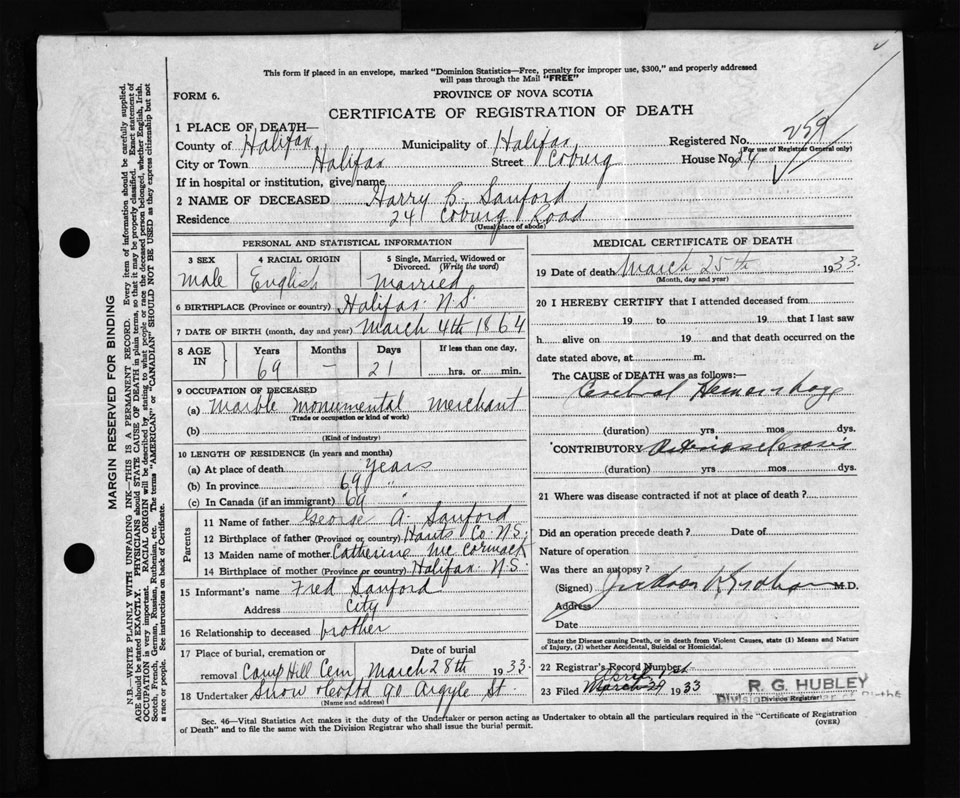 This form if placed in an envelope, marked "Dominion Statistics—Free, penalty for improper use, $300," and properly addressed
will pass through the Mail "FREE"
FORM 6.
PROVINCE OF NOVA SCOTIA
CERTIFICATE OF REGISTRATION OF DEATH
1 PLACE OF DEATH—
County of Halifax Municipality of Halifax Registered No. 259
(For use of Registrar General only)
City or Town Halifax Street Coburg House No. 24
If in hospital or institution, give name
2 NAME OF DECEASED Harry B. Sanford
Residence 24 Coburg Road
(Usual place of abode)
MARGIN RESERVED FOR BINDING
N.B.—WRITE PLAINLY WITH UNFADING INK—THIS IS A PERMANENT RECORD. Every item of information should be carefully supplied.
AGE should be stated EXACTLY. PHYSICIANS should STATE CAUSE OF DEATH in plain terms, so that it may be properly classified. Exact statement of
OCCUPATION is very important. RACIAL ORIGIN will be described by stating to what people or race the deceased person belonged, whether English, Irish,
Scotch, French, German, Russian, Ruthenian, etc. The terms "AMERICAN" or "CANADIAN" SHOULD NOT BE USED as they express citizenship but not
a race or people. See instructions on back of Certificate.
PERSONAL AND STATISTICAL INFORMATION
3 SEX 4 RACIAL ORIGIN 5 Single, Married, Widowed or
Divorced. (Write the word)
male English Married
6 BIRTHPLACE (Province or country) Halifax N.S.
7 DATE OF BIRTH (month, day and year) March 4th 1864
8 AGE IN Years Months Days If less than one day,
69 — 21 hrs. or min.
9 OCCUPATION OF DECEASED
(a) Marble monumental merchant
(Trade or occupation or kind of work)
(b)
(Kind of industry)
10 LENGTH OF RESIDENCE (in years and months)
(a) At place of death years
(b) In province 69 "
(c) In Canada (if an immigrant) 69 "
Parents
11 Name of father George A. Sanford
12 Birthplace of father (Province or country) Hants Co. N.S.
13 Maiden name of mother Catherine McCormack
14 Birthplace of mother (Province or country) Halifax N.S.
15 Informant's name Fred Sanford
Address City
16 Relationship to deceased brother
17 Place of burial, cremation or Date of burial
removal Camp Hill Cem March 28th 1933.
18 Undertaker Snow & Co Ltd 90 Argyle St.
(Name and address)
MEDICAL CERTIFICATE OF DEATH
19 Date of death March 25th 1933.
(Month, day and year)
20 I HEREBY CERTIFY that I attended deceased from
19 to 19 that I last saw
h alive on 19 and that death occurred on the
date stated above, at m.
The CAUSE of DEATH was as follows:—
Cerebral Hemorrhage
(duration) yrs mos dys.
CONTRIBUTORY Arteriosclerosis
(duration) yrs mos dys.
21 Where was disease contracted if not at place of death?
Did an operation precede death? Date of
Nature of operation
Was there an autopsy?
(Signed) M.D.
Address
Date
State the Disease causing Death, or in death from Violent Causes, state (1) Means and Nature
of Injury, (2) whether Accidental, Suicidal or Homicidal.
22 Registrar's Record Number
23 Filed March 29 1933 R. G. HUBLEY
Division Registrar
Sec. 46—Vital Statistics Act makes it the duty of the Undertaker or person acting as Undertaker to obtain all the particulars required in the "Certificate of Registration
of Death" and to file the same with the Division Registrar who shall issue the burial permit.
(OVER)